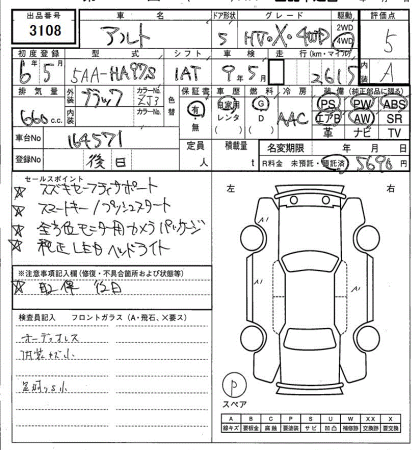 出品番号 車名 ドア形状 グレード 駆動 評価点
3108 アルト 5 HT・X・4WD 2WD 4WD 5
初度登録 型式 シフト 車検 走行(km・マイル)
6年5月 5AA-HA97S IAT 9年5月 2615 A
排気量 外装 ブラック カラーNo. ZJ3 色替 保証書 車歴 燃料 冷房 装備(純正品に限る)
660c.c. 内装 カラーNo. 有・無 自家用 レンタ G D AAC PS PW ABS
エアB AW SR
革 ナビ TV
車台No 164571
登録No 後日
定員 人 積載量 t 名変期限 年 月 日
R料金 未預託・預託済 5690円
セールスポイント
スズキセーフティサポート
スマートキー/プッシュスタート
全方位モニター用カメラパッケージ
純正LEDヘッドライト
※注意事項記入欄(修復・不具合箇所および状態等)
取保 後日
検査員記入 フロントガラス(A・飛石、X要ス)
オーディオレス
内装キズ小
左 右
A1
A1
A1
P
スペア
A B C P S U W X XX X
線キズ 要板金 腐蝕 要塗装 サビ 凹凸 補修跡 交換跡 要交換